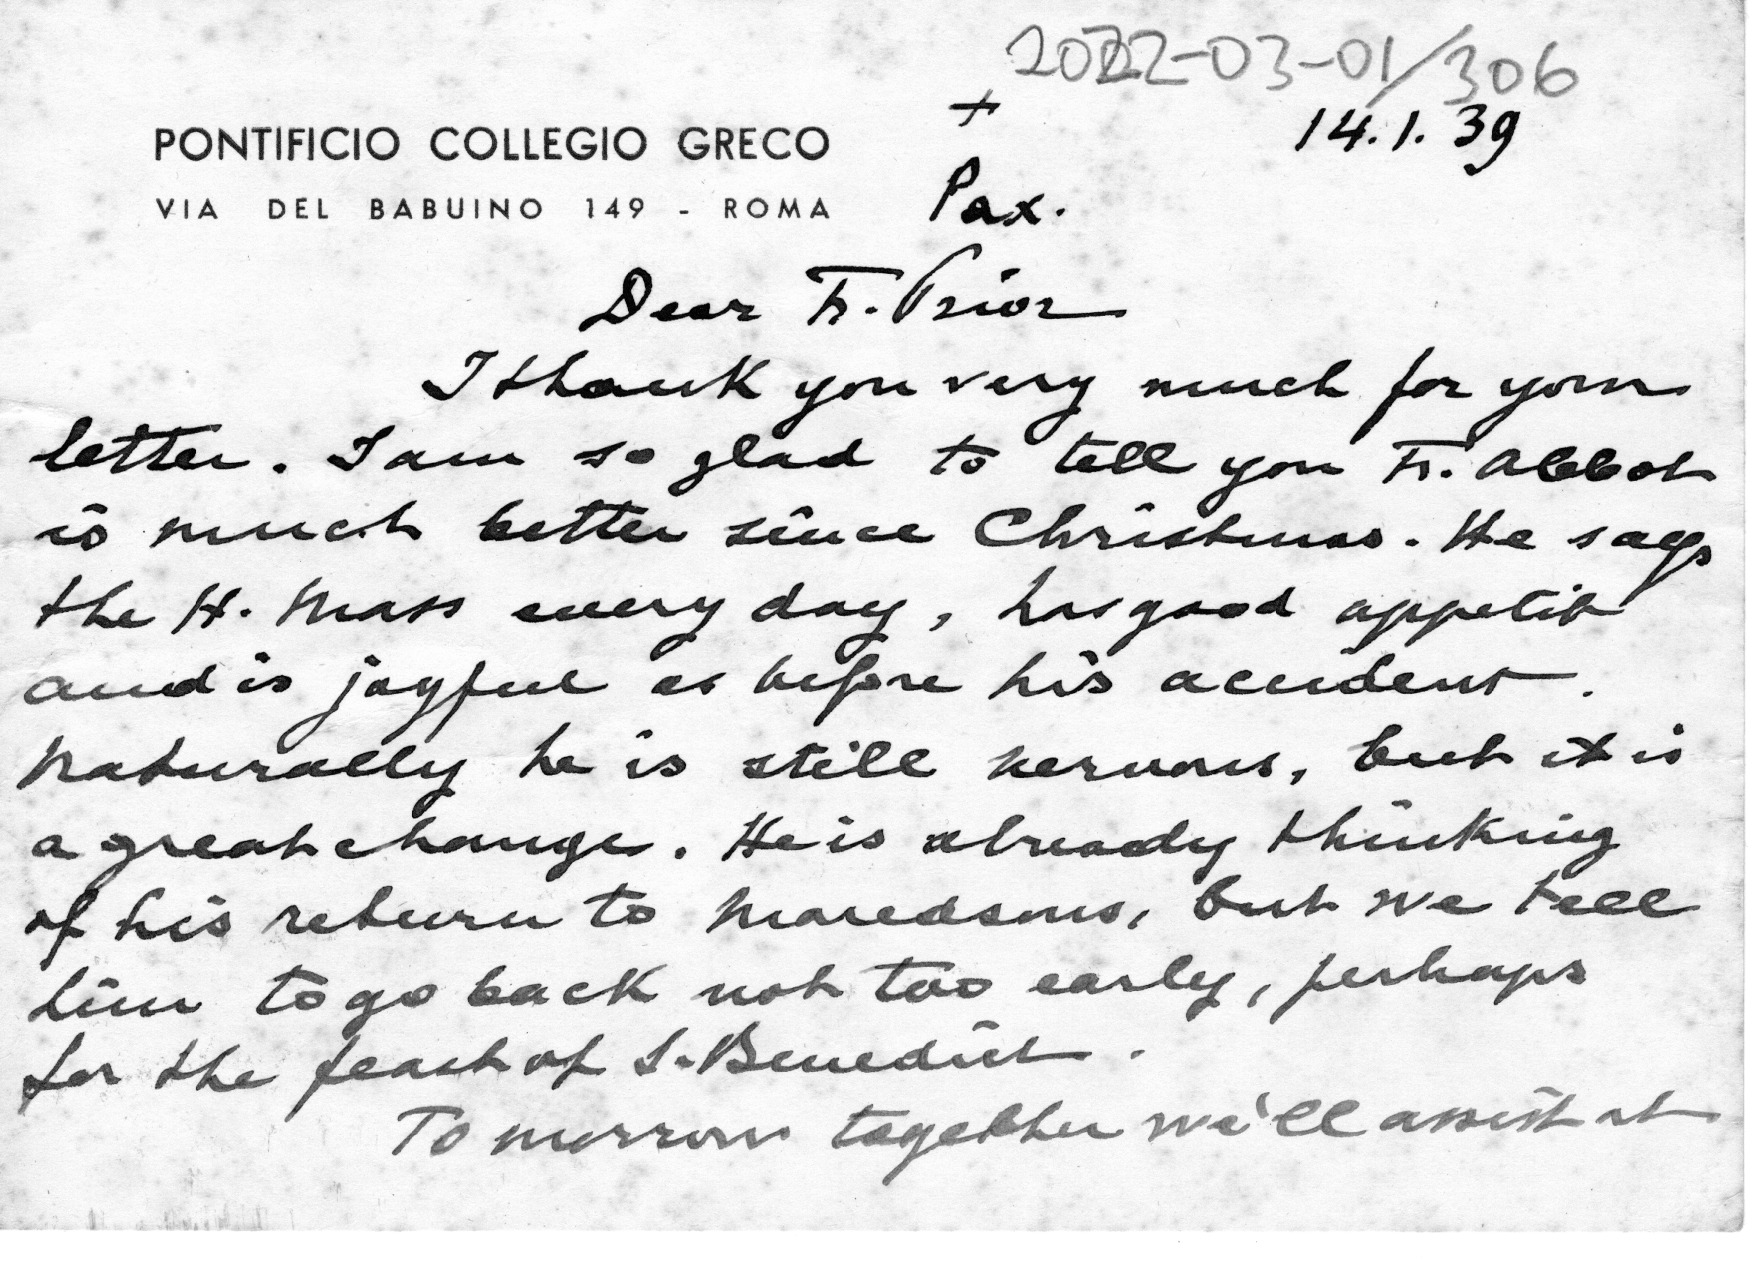 2022-03-01/306
PONTIFICIO COLLEGIO GRECO
VIA DEL BABUINO 149 - ROMA
+
14.1.39
Pax.
Dear Fr. Prior
I thank you very much for your
letter. I am so glad to tell you Fr. Abbot
is much better since Christmas. He says
the H. Mass every day, has good appetit
and is joyful as before his accident.
Naturally he is still nervous, but it is
a great change. He is already thinking
of his return to Maredsous, but we tell
him to go back not too early, perhaps
for the feast of S. Benedict.
To morrow together we'll assist at